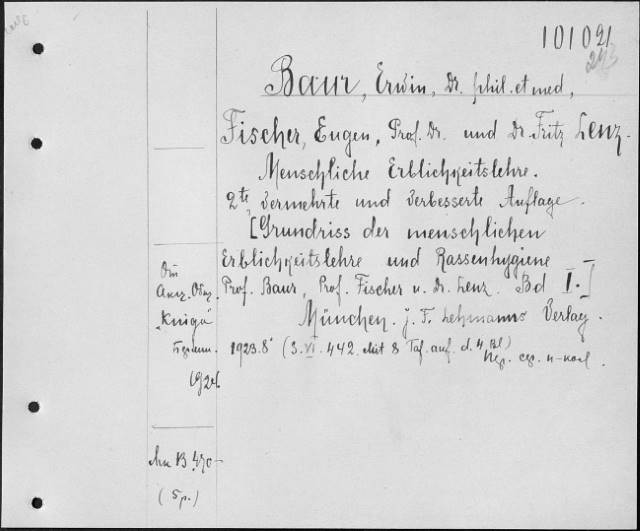 101021
Baur, Erwin, Dr. phil. et med,
Fischer, Eugen, Prof. Dr. und Dr. Fritz Lenz.
Menschliche Erblichkeitslehre.
2te, vermehrte und verbesserte Auflage.
[Grundriss der menschlichen
Erblichkeitslehre und Rassenhygiene
Prof. Baur, Prof. Fischer u. Dr. Lenz. Bd I.]
München. J. F. Lehmanns Verlag.
1923. 8° (3. VI. 442. Mit 8 Taf. auf. d. 4 Bl)
Акц. Общ.
„Книга“
1924.
(5 р.)